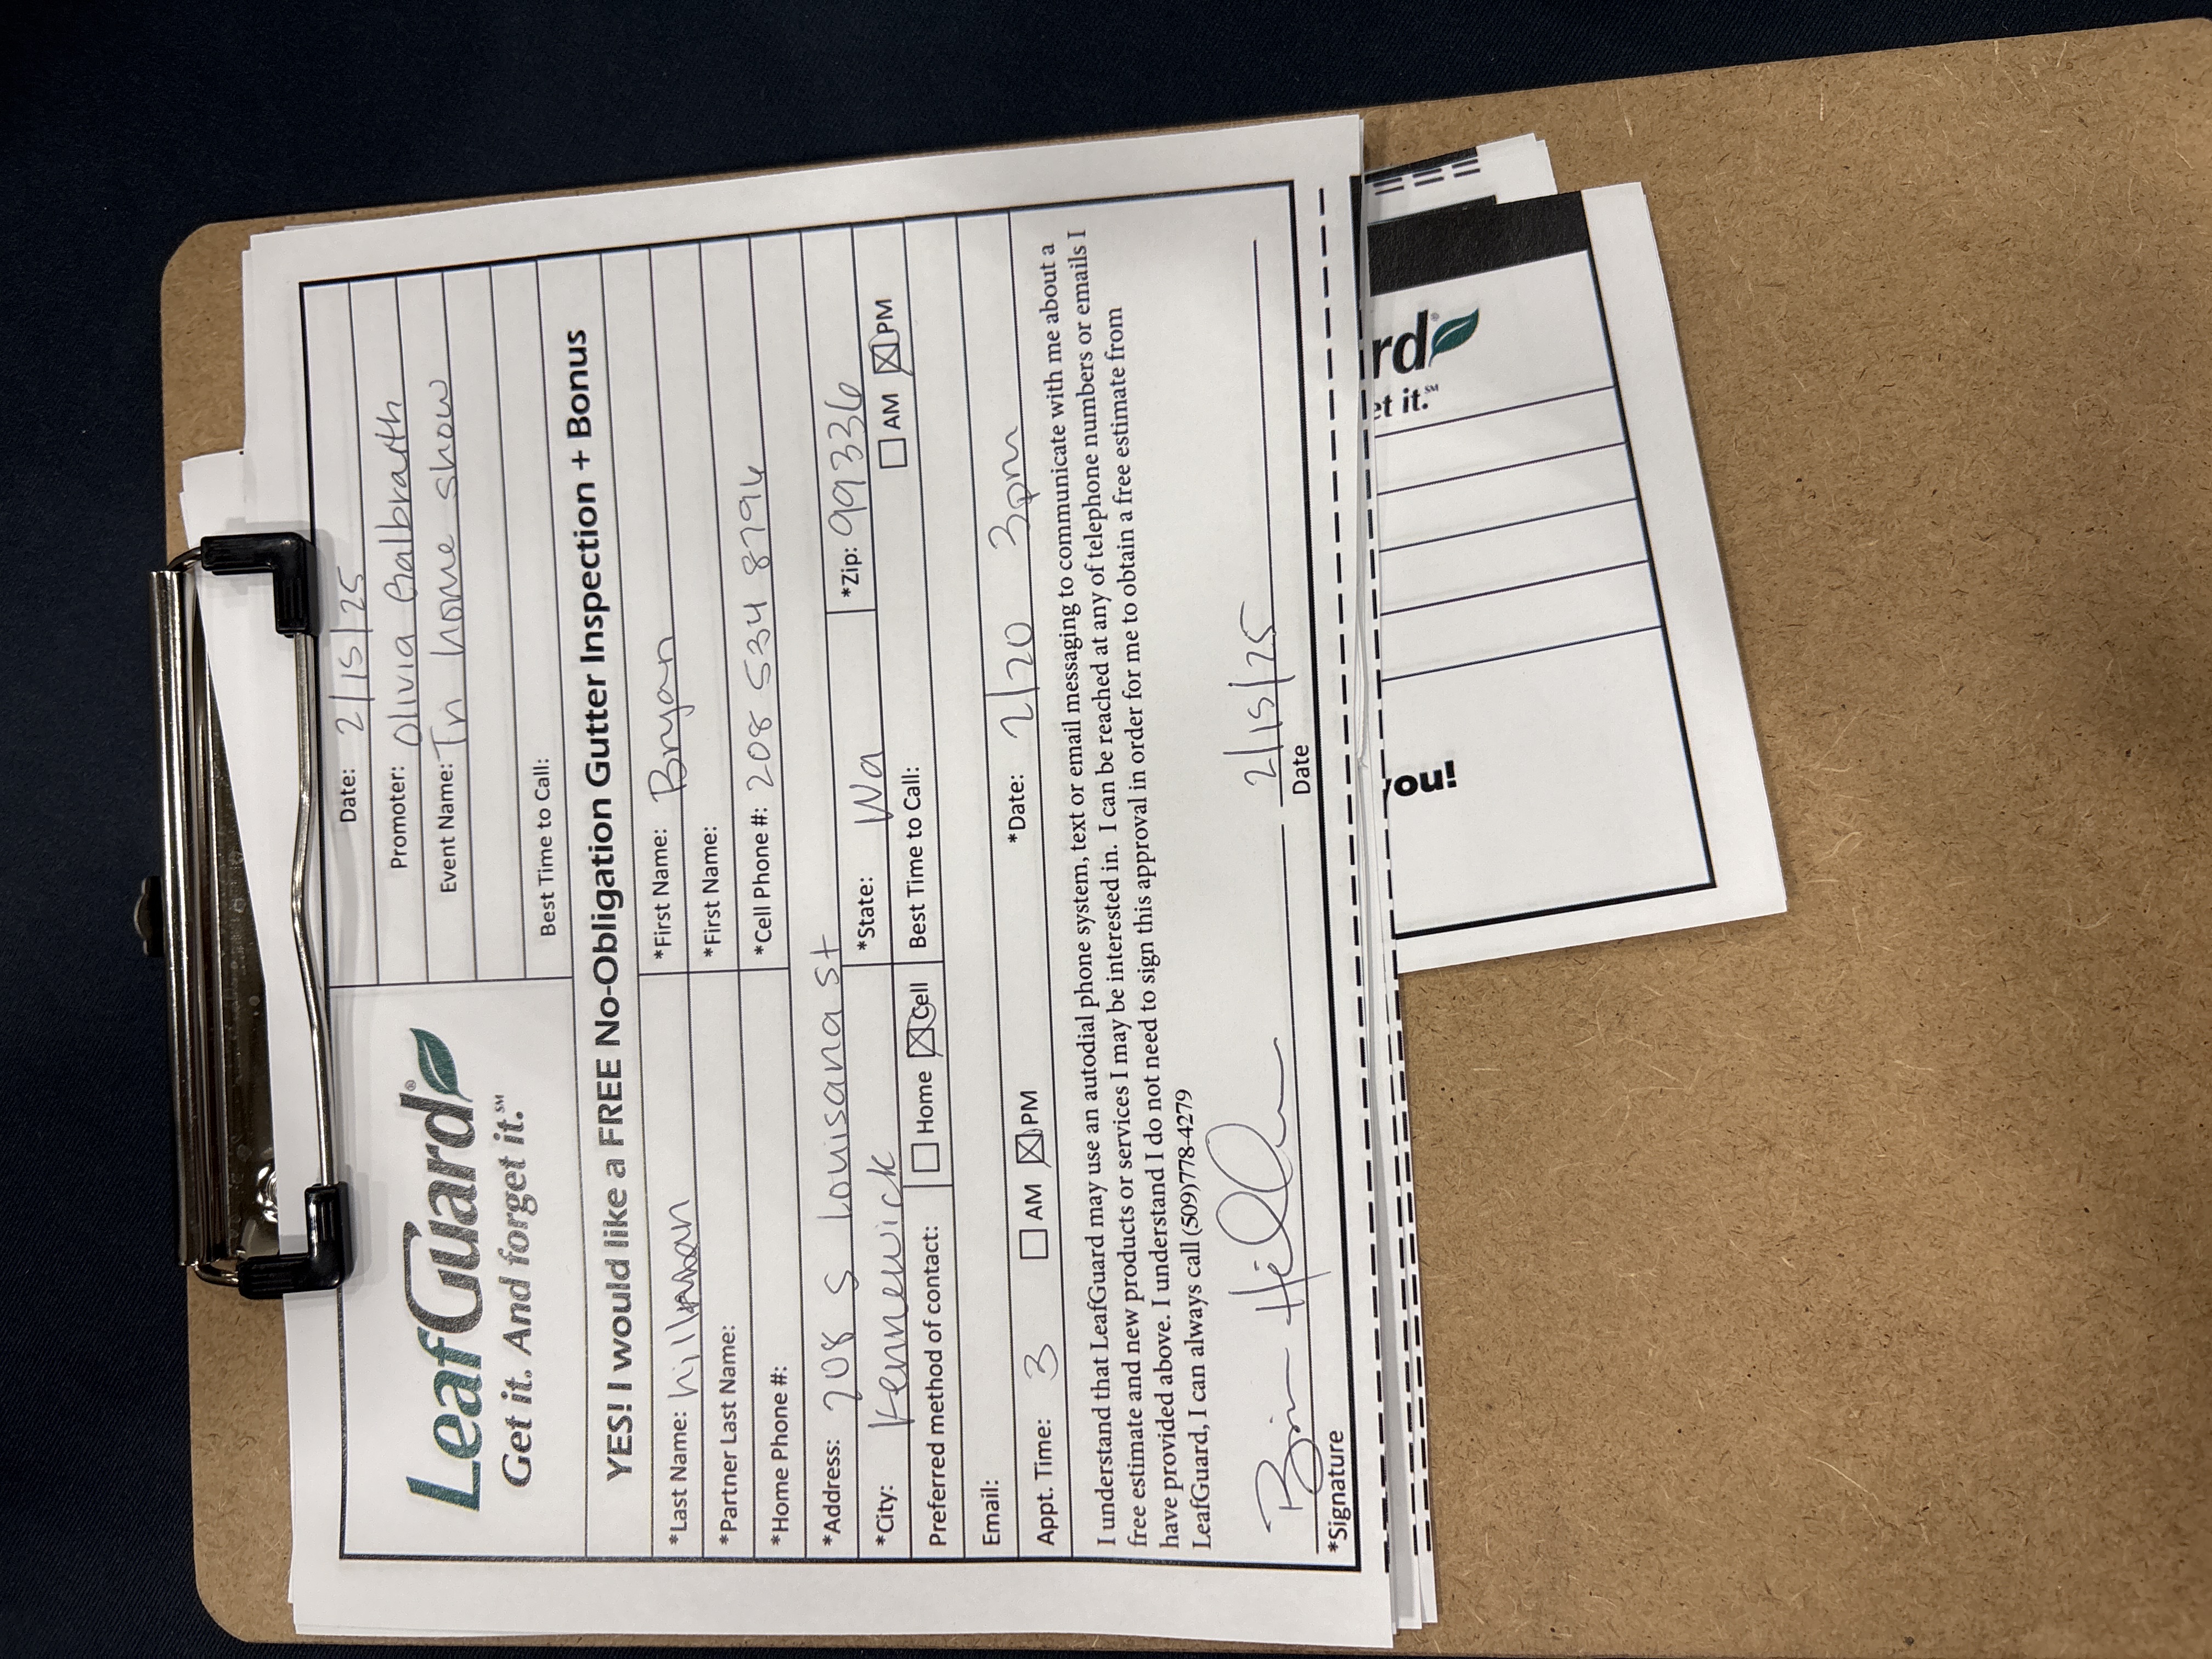 Date: 2/15/25
Promoter: Olivia Galbraith
Event Name: Tri home show
LeafGuard®
Get it. And forget it.℠
Best Time to Call:
YES! I would like a FREE No-Obligation Gutter Inspection + Bonus
*Last Name: *First Name: Bryan
*Partner Last Name: *First Name:
*Home Phone #: *Cell Phone #: 208 534 8796
*Address: 208 S Louisana St
*City: Kennewick *State: Wa *Zip: 99336
Preferred method of contact: Home Cell Best Time to Call: AM PM
Email:
Appt. Time: 3 AM PM *Date: 2/20 3pm
I understand that LeafGuard may use an autodial phone system, text or email messaging to communicate with me about a
free estimate and new products or services I may be interested in. I can be reached at any of telephone numbers or emails I
have provided above. I understand I do not need to sign this approval in order for me to obtain a free estimate from
LeafGuard, I can always call (509)778-4279
2/15/25
*Signature Date
ou!
rd®
et it.℠